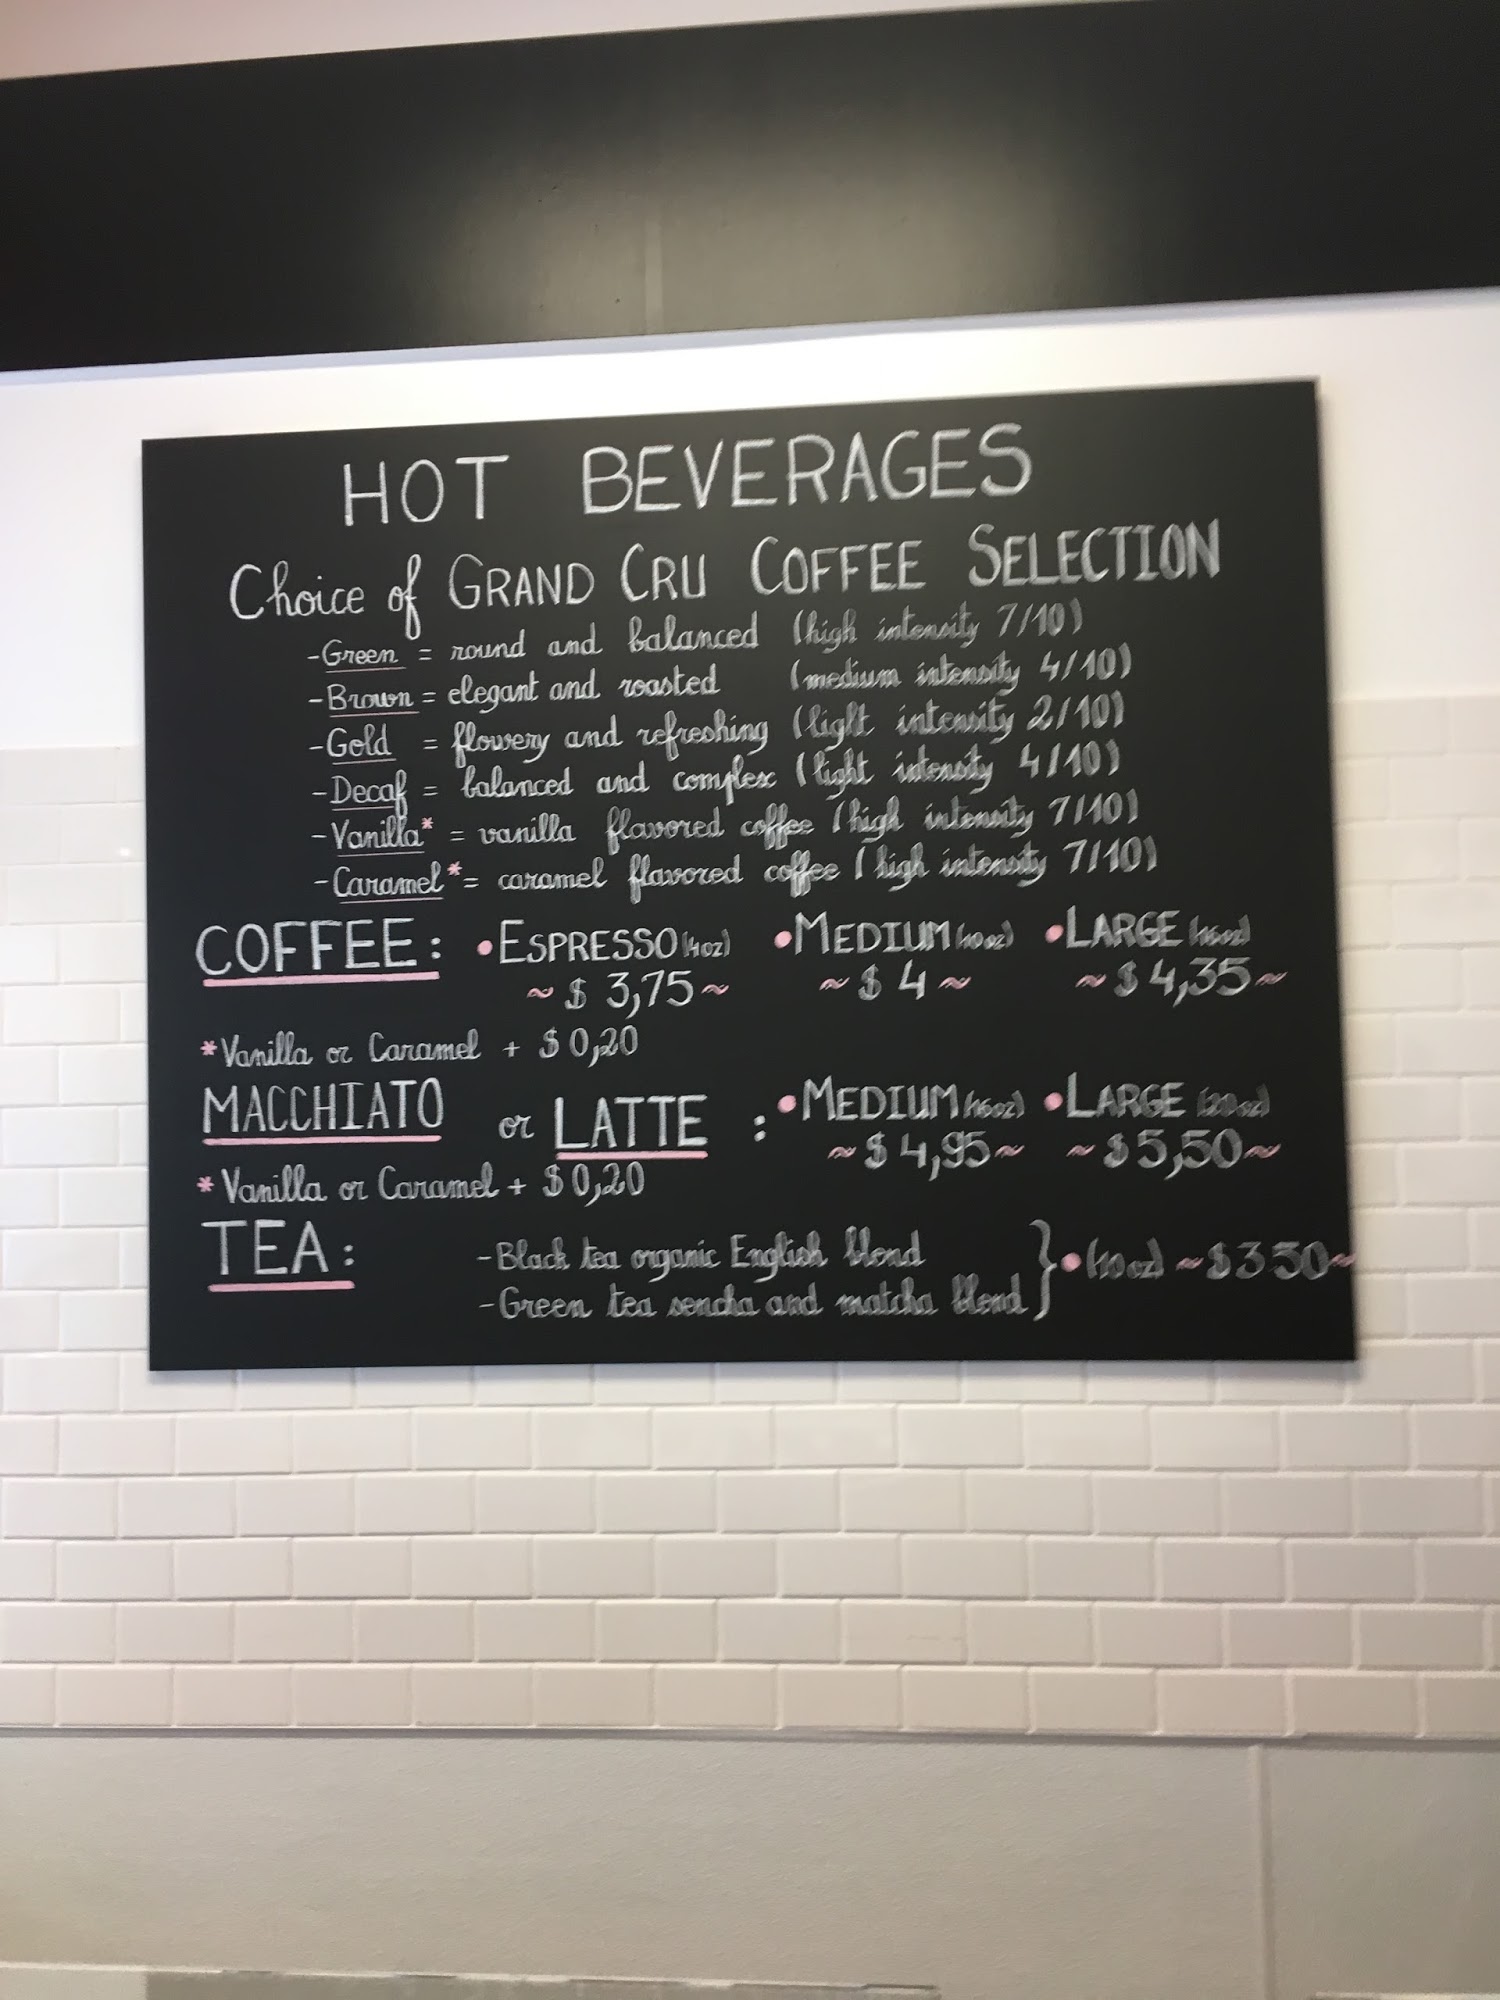 HOT BEVERAGES
Choice of GRAND CRU COFFEE SELECTION
-Green = round and balanced (high intensity 7/10)
-Brown = elegant and roasted (medium intensity 4/10)
-Gold = flowery and refreshing (light intensity 2/10)
-Decaf = balanced and complex (light intensity 4/10)
-Vanilla* = vanilla flavored coffee (high intensity 7/10)
-Caramel* = caramel flavored coffee (high intensity 7/10)
COFFEE: •ESPRESSO (4oz) •MEDIUM (10oz) •LARGE (16oz)
~ $ 3,75 ~ ~ $ 4 ~ ~ $ 4,35 ~
*Vanilla or Caramel + $ 0,20
MACCHIATO or LATTE : •MEDIUM (16oz) •LARGE (20oz)
~ $ 4,95 ~ ~ $ 5,50 ~
*Vanilla or Caramel + $ 0,20
TEA: -Black tea organic English blend
-Green tea sencha and matcha blend } •(10oz) ~ $ 3 50 ~